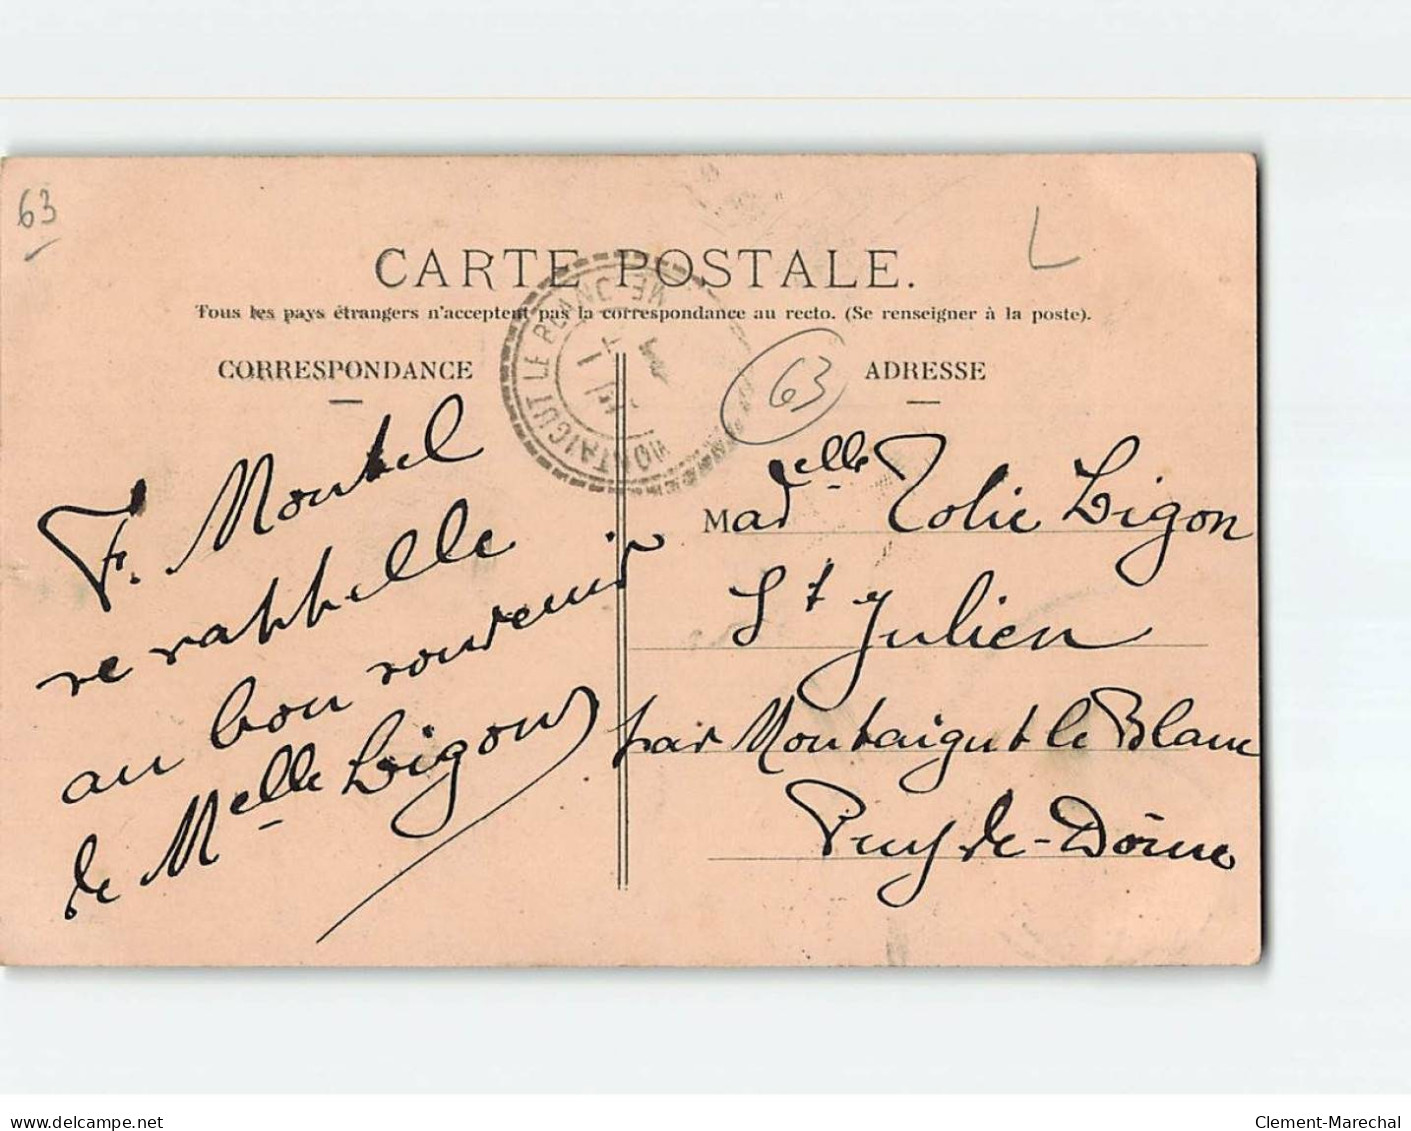 63
L
CARTE POSTALE.
Tous les pays étrangers n'acceptent pas la correspondance au recto. (Se renseigner à la poste).
CORRESPONDANCE
MONTAIGUT LE BLANC
63
ADRESSE
F. Montel
se rappelle
au bon souvenir
de Melle Ligon
Madelle Zolie Ligon
St Julien
par Montaigut le Blanc
Puy-de-Dôme
www.delcampe.net
Clement-Marechal